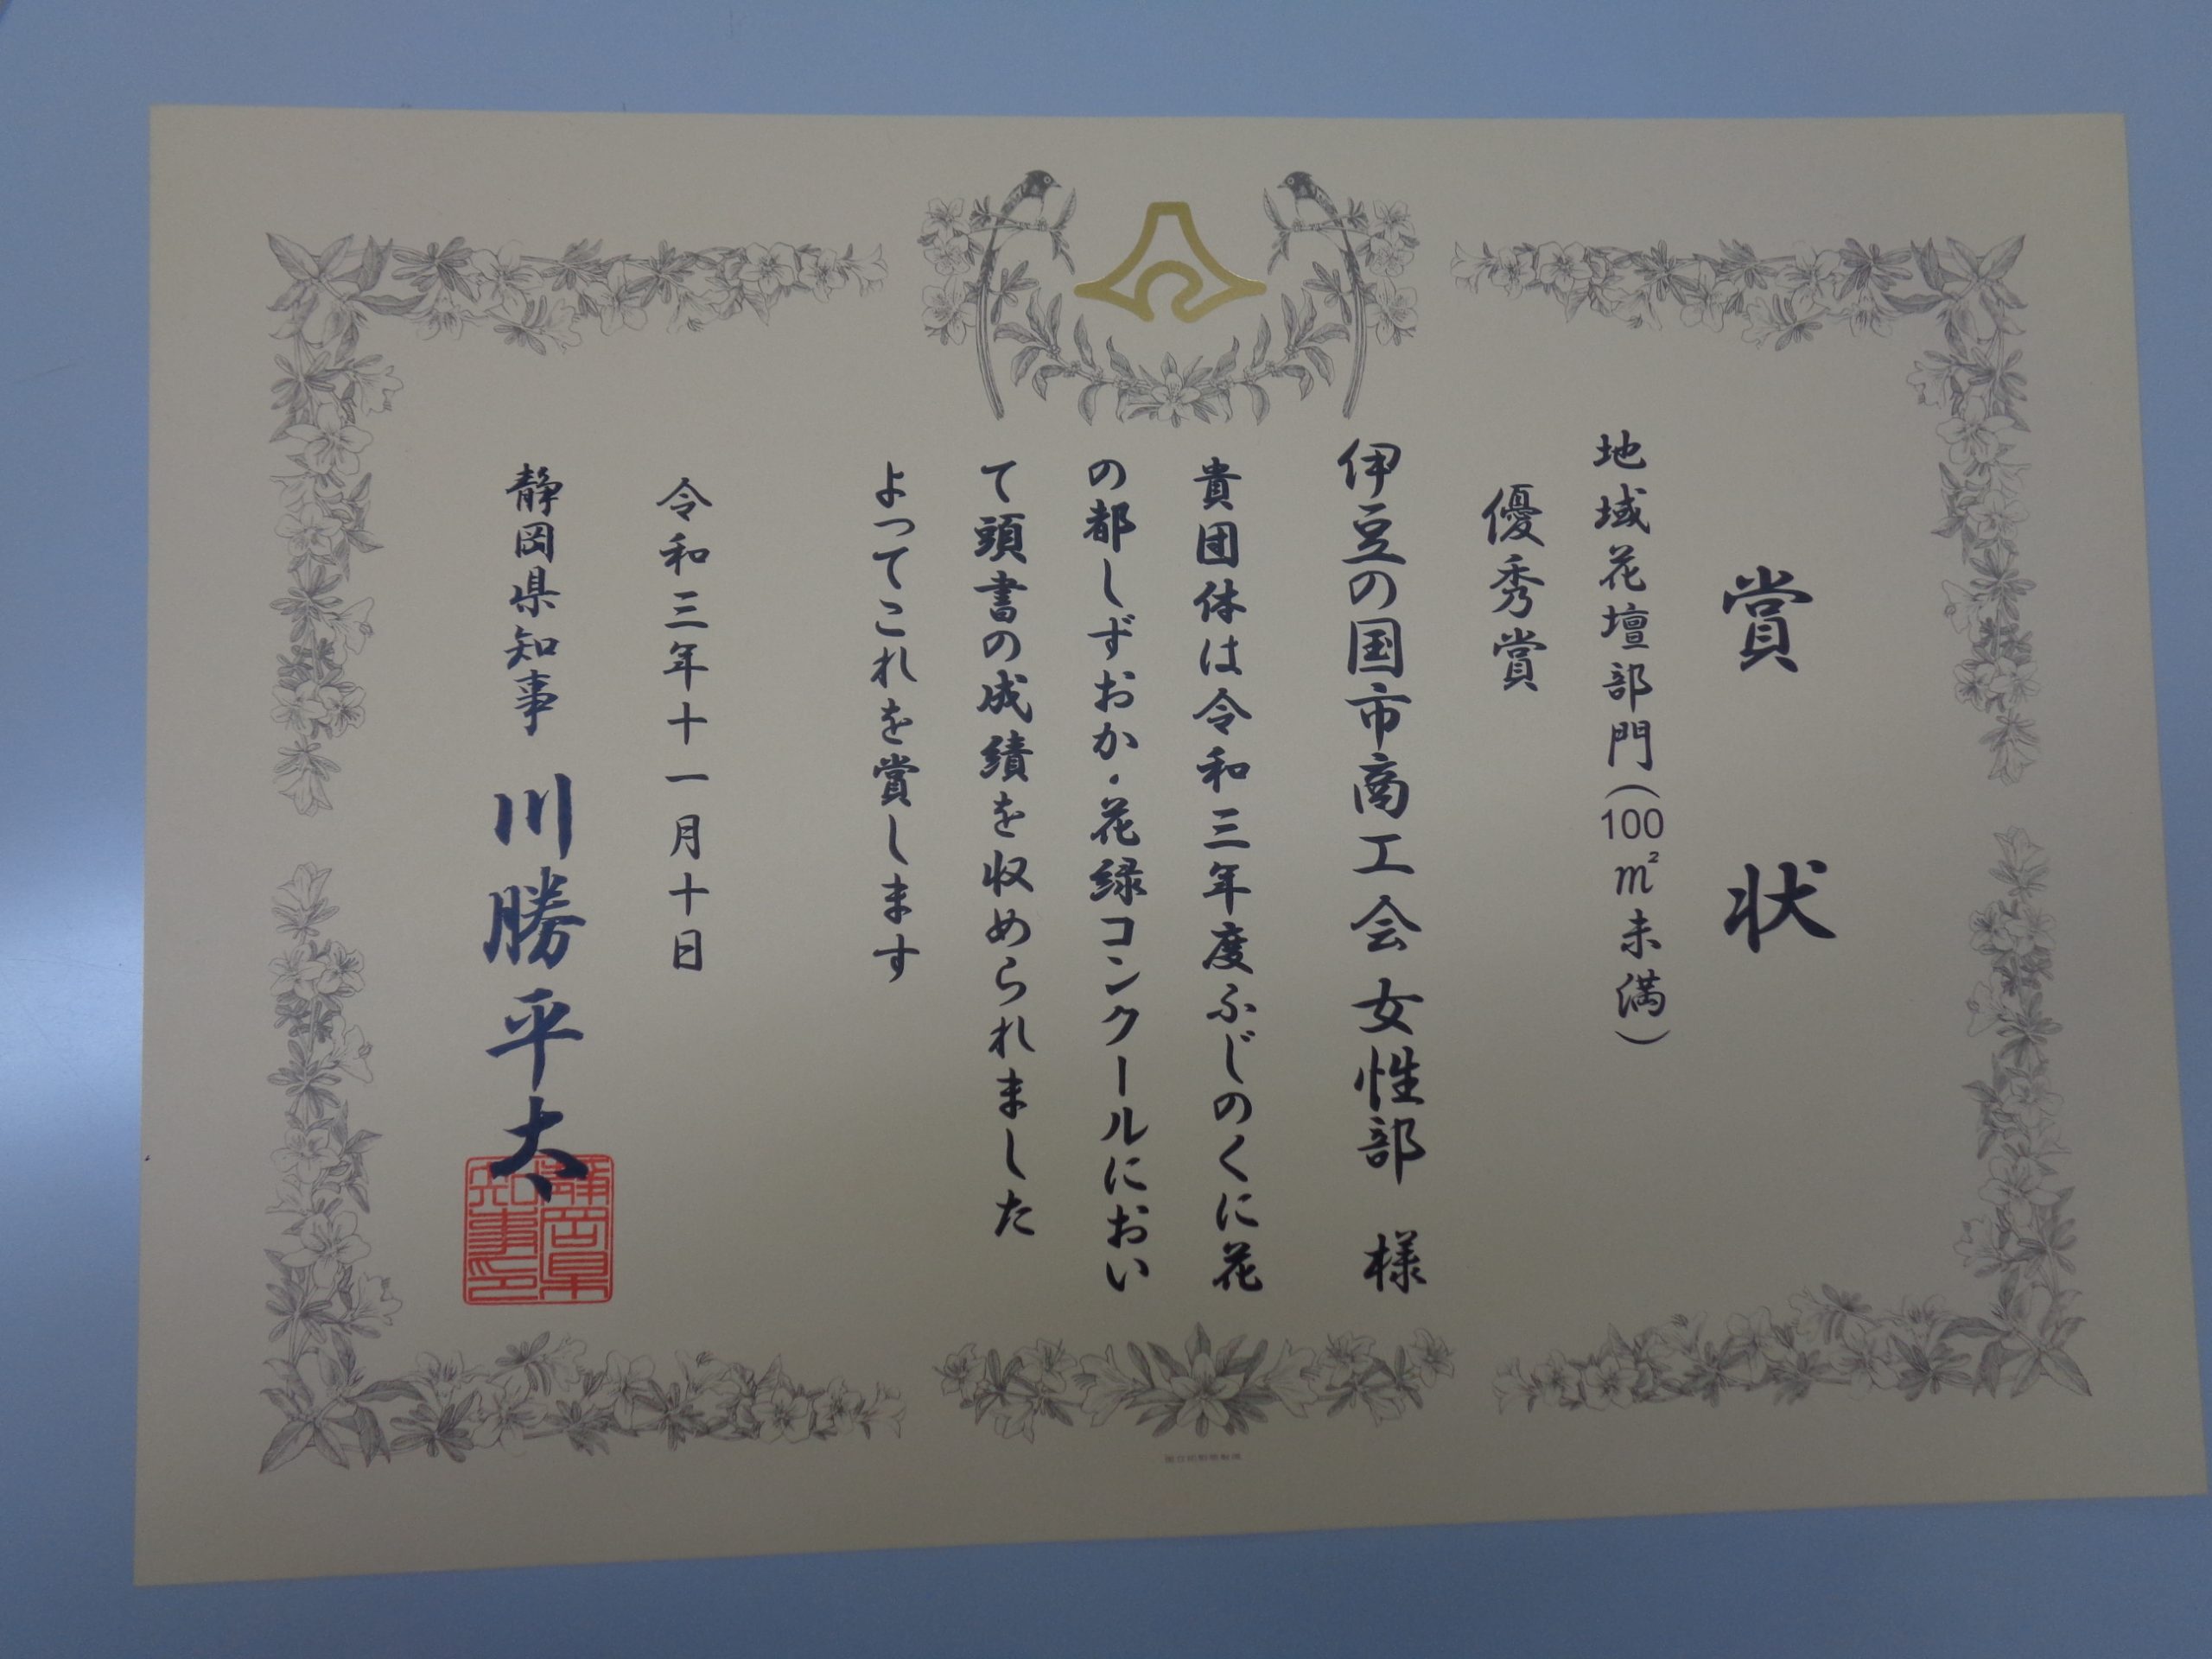 賞状
地域花壇部門(100㎡未満)
優秀賞
伊豆の国市商工会女性部 様
貴団体は令和三年度ふじのくに花
の都しずおか・花緑コンクールにおい
て頭書の成績を収められました
よってこれを賞します
令和三年十一月十日
静岡県知事 川勝平太
静岡県
知事印